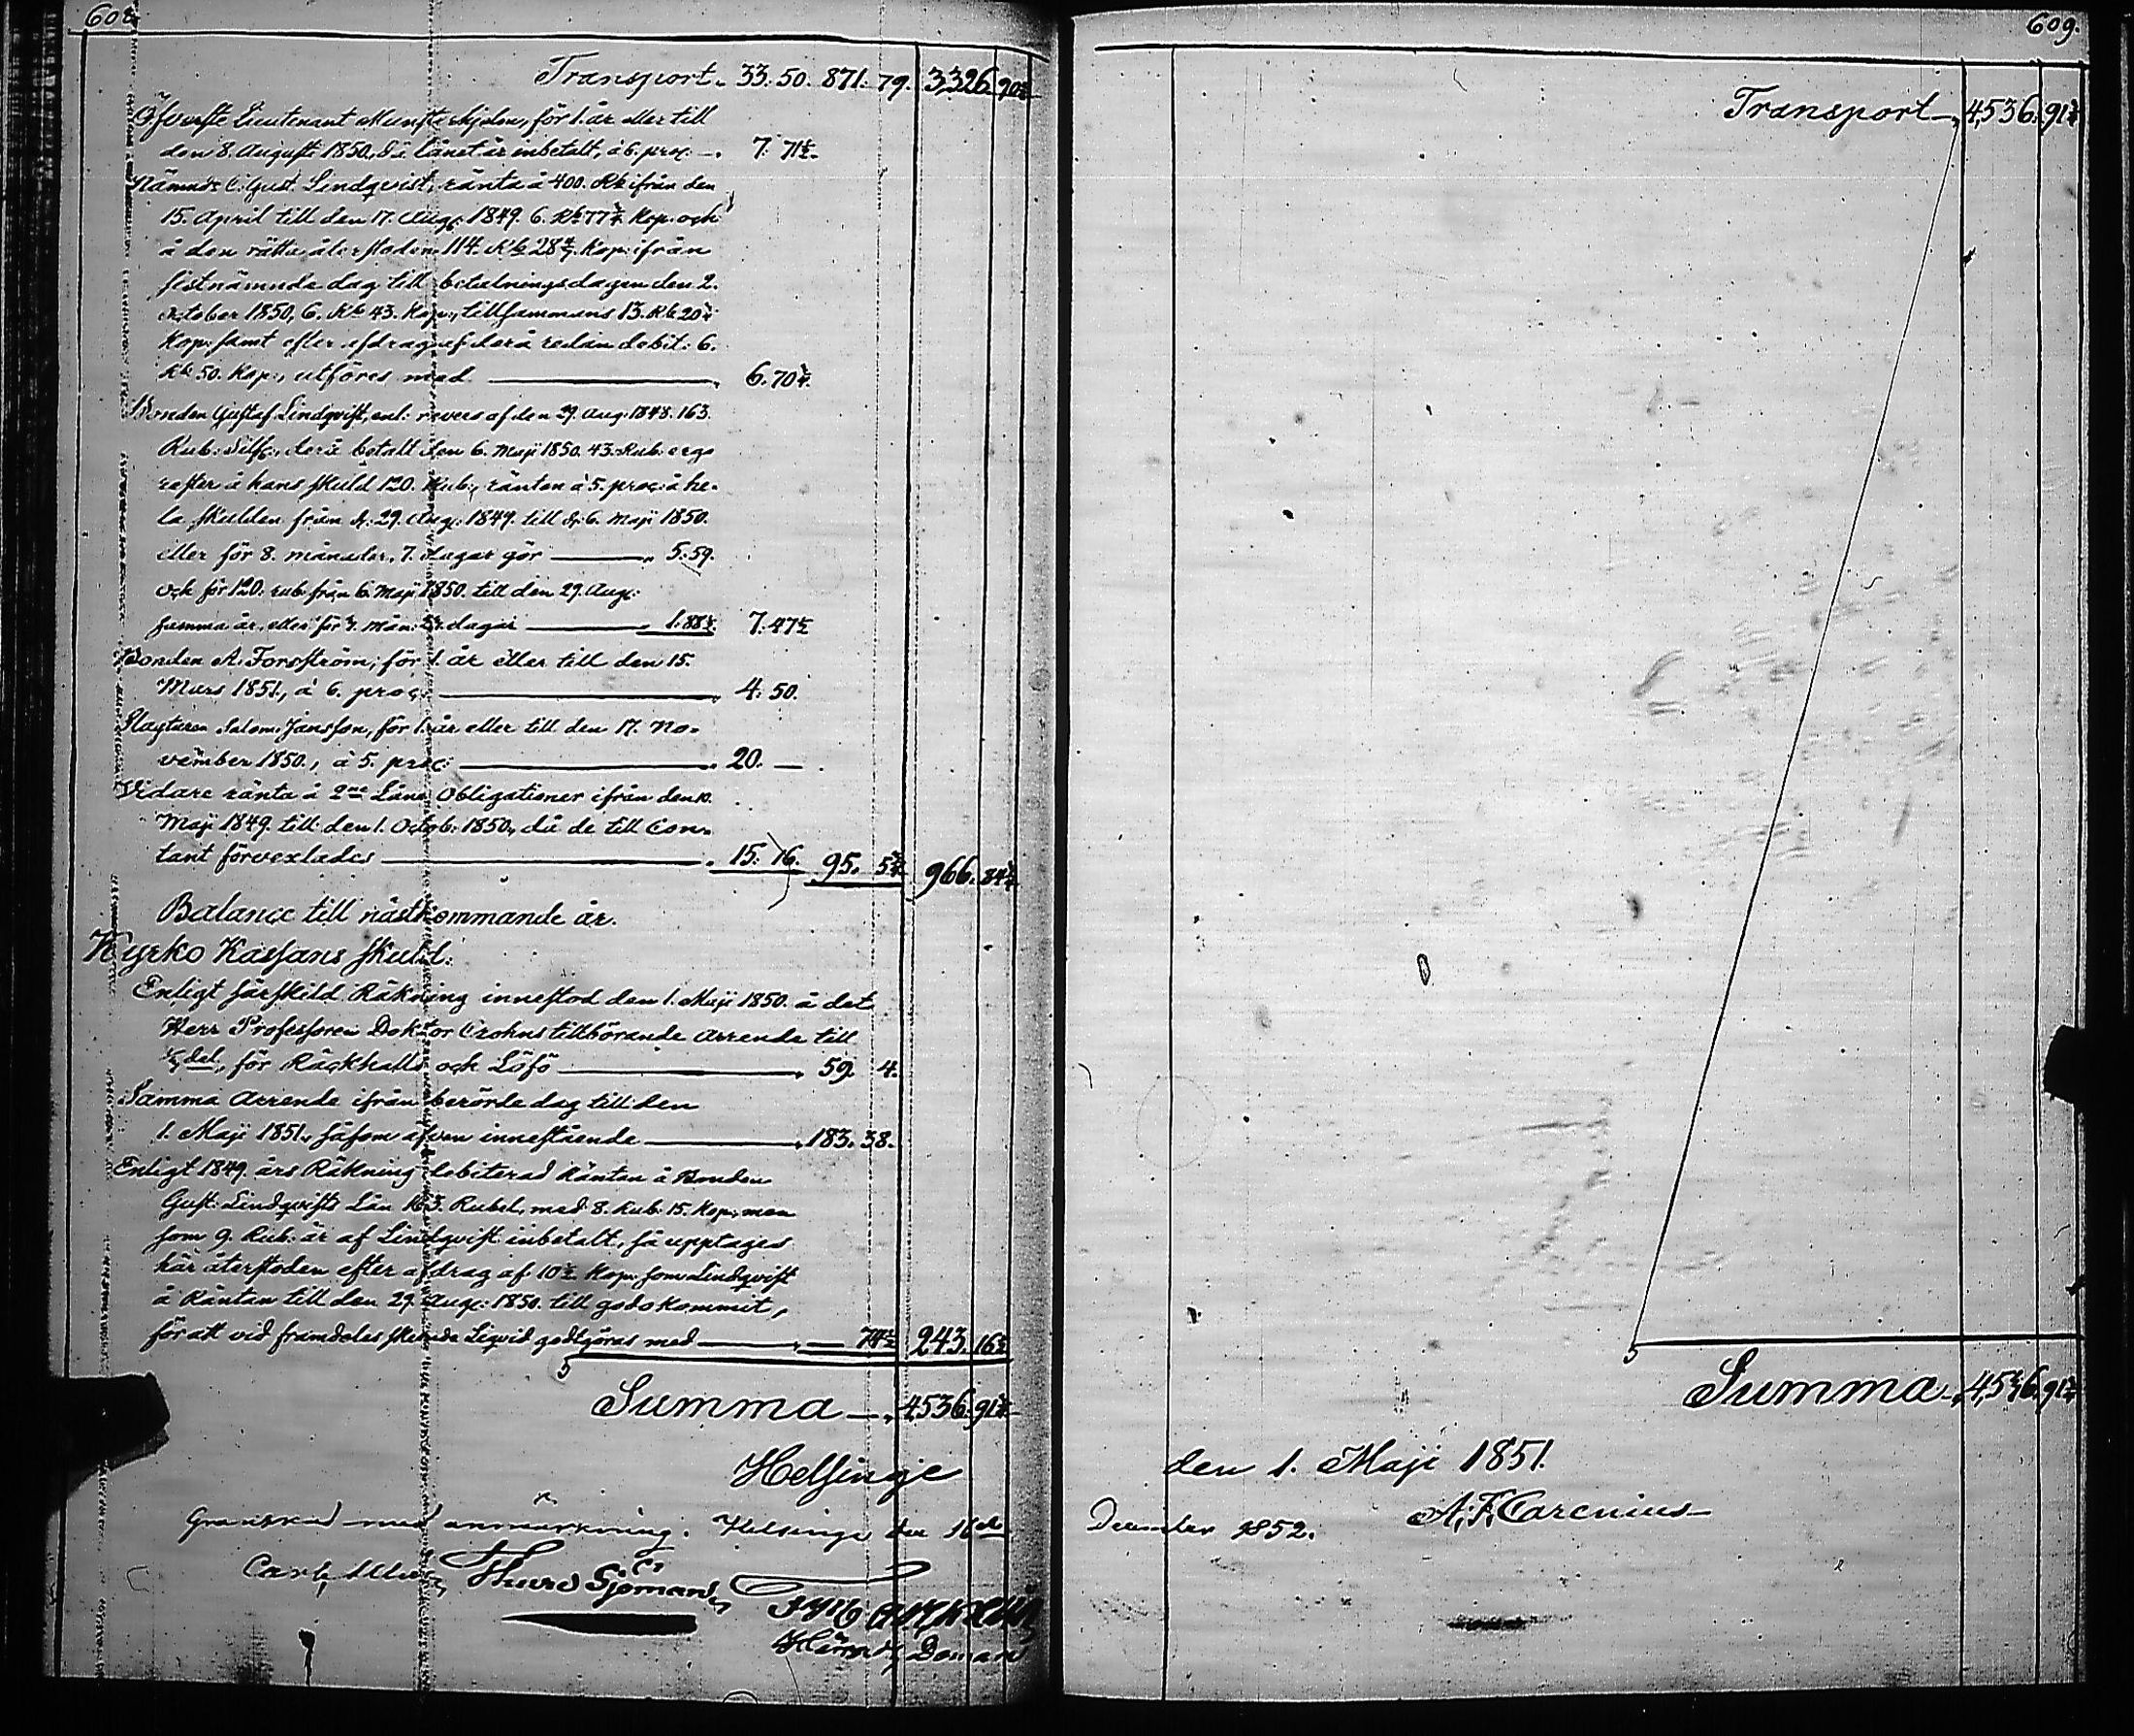 608.
Transport 33. 50. 871. 79. 3,326. 90½
Öfverste Lieutenant Munsterhjelm, för 1. år eller till
den 8. Augusti 1850, då lånet är inbetalt, à 6. proc. — 7. 71½
Nämnd: C. Gust. Lindqvist, ränta å 400. Rb ifrån den
15. April till den 17. Aug: 1849. 6. Rb 77¾ Kop. och
å den rätta återstoden 114. Rb 28 4/7 Kop: ifrån
sistnämnde dag till betalningsdagen den 2.
October 1850, 6. Rb 43. Kop:, tillsammans 13. Rb 20¾
Kop: samt efter afdrag af derå redan debit: 6.
Rb 50. Kop:, utföres med — 6. 70¾
Bonden Gustaf Lindqvist, enl: revers af den 29. Aug: 1848. 163.
Rub: Silfr:, derå betalt den 6. Maji 1850. 43. Rub: ergo
rester å hans skuld 120. Rub:, räntan à 5. proc: å he-
la skulden från d. 29. Aug: 1849. till d. 6. Maji 1850.
eller för 8. månader, 7. dagar gör — 5. 59.
och för 120. rub. från 6. Maji 1850. till den 29. Aug:
samma år, eller för 3. mån: 23. dagar — 1. 88½ 7. 47½
Bonden A. Forsström, för 1. år eller till den 15.
Mars 1851, à 6. proc: — 4. 50.
Slagtaren Salom: Jansson, för 1. år eller till den 17. No-
vember 1850, à 5. proc: — 20. —
Vidare ränta å 2ne Låne Obligationer ifrån den 10.
Maji 1849. till den 1. Octob: 1850, då de till Con-
tant förvexlades — 15. 16. 95. 5¾ 966. 84¾
Balance till nästkommande år.
Kyrko Kassans skuld:
Enligt särskild Räkning innestod den 1. Maji 1850. å det
Herr Professoren Doktor Crohns tillhörande Arrende till
½ del, för Räckhalls och Löfö — 59. 4.
Samma Arrende ifrån berörde dag till den
1. Maji 1851, såsom äfven innestående — 183. 38.
Enligt 1849. års Räkning debiterad Räntan å Bonden
Gust: Lindqvists Lån 163. Rubel, med 8. Rub: 15. Kop:, men
som 9. Rub: är af Lindqvist inbetalt, så upptages
här återstoden efter afdrag af 10½ Kop: som Lindqvist
å Räntan till den 29. Aug: 1850. till godo kommit,
för att vid framdeles skeende Liqvid godtgöras med — 74½ 243. 16½
Summa — 4,536. 91¾
Helsinge
Granskad med anmärkning. Helsinge den 16de
Carl Thure Sjöman
Doman
609.
Transport — 4,536. 91¾
Summa — 4,536. 91¾
den 1. Maji 1851.
A. F. Carenius
December 1852.